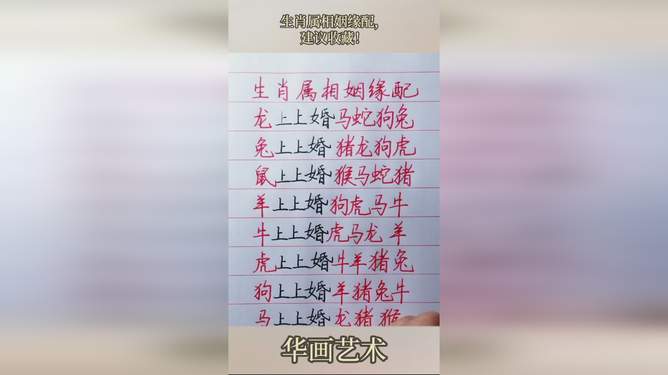 生肖属相姻缘配,
建议收藏!
生肖属相姻缘配
龙上上婚马蛇狗兔
兔上上婚猪龙狗虎
鼠上上婚猴马蛇猪
羊上上婚狗虎马牛
牛上上婚虎马龙羊
虎上上婚牛羊猪兔
狗上上婚羊猪兔牛
马上上婚龙猪猴
华画艺术